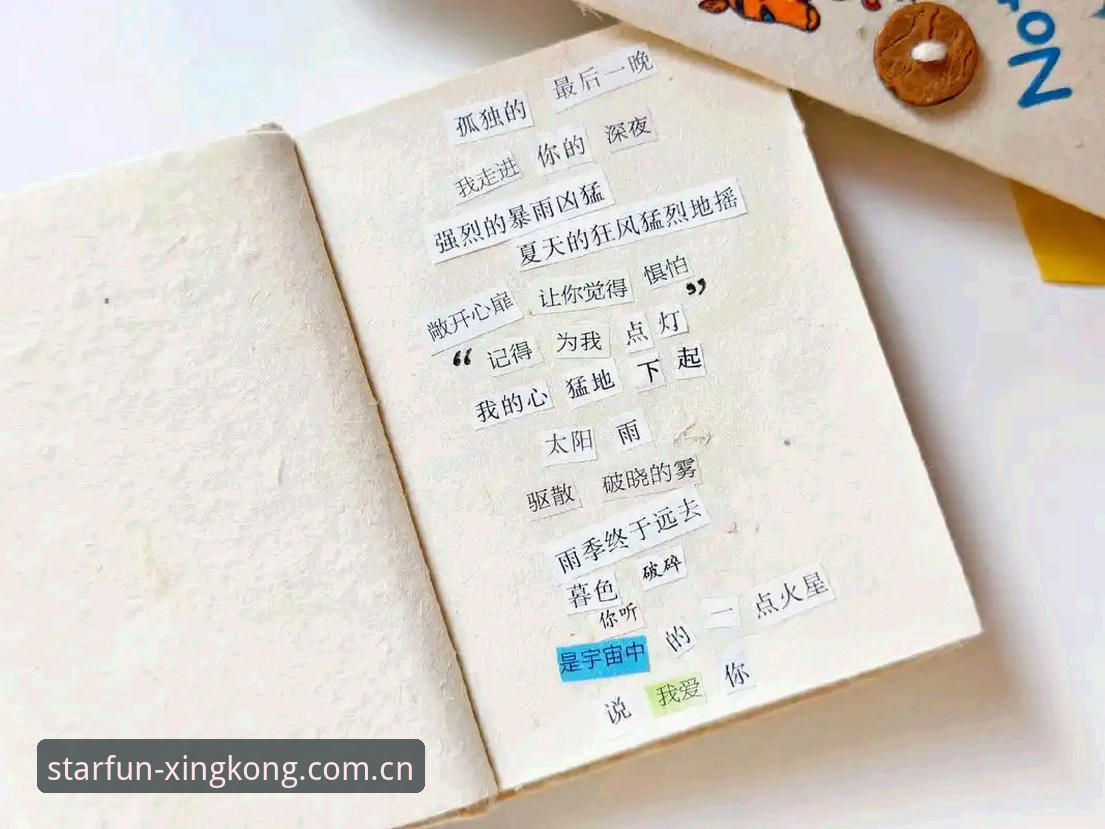 孤独的 最后一晚
我走进 你的 深夜
强烈的暴雨凶猛
夏天的狂风猛烈地摇
敞开心扉 让你觉得 惧怕
“记得 为我 点 灯”
我的心 猛地 下 起
太阳 雨
驱散 破晓的雾
雨季终于远去
暮色 破碎
你听
是宇宙中 的 一 点火星
说 我爱 你
NO
starfun-xingkong.com.cn